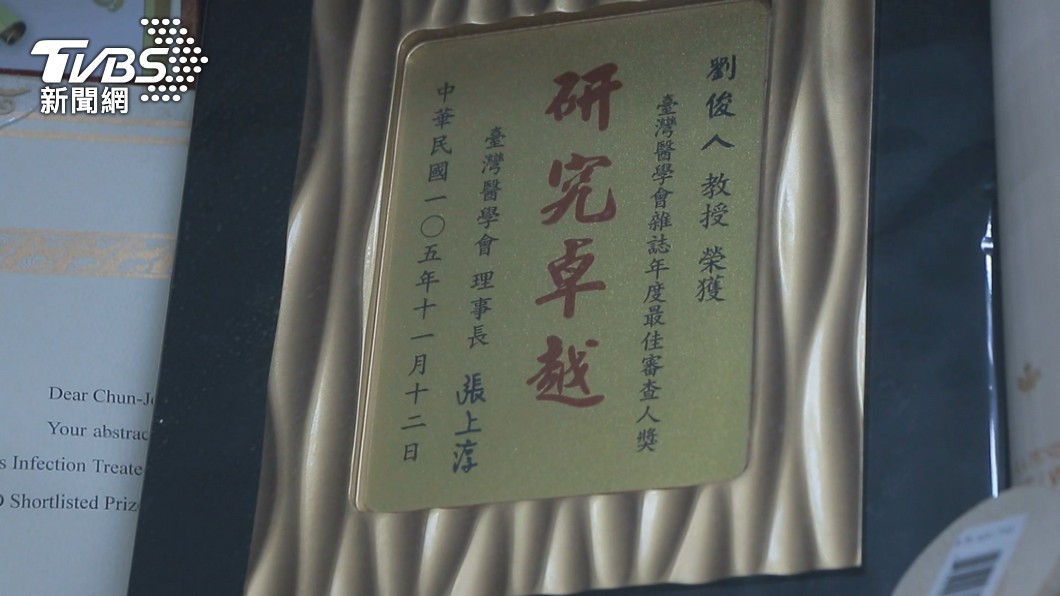 TVBS
新聞網
劉俊人 教授 榮獲
臺灣醫學會雜誌年度最佳審查人獎
研究卓越
臺灣醫學會 理事長 張上淳
中華民國一〇五年十一月十二日
Dear Chun-J
Your abstrac
s Infection Treate
Shortlisted Priz